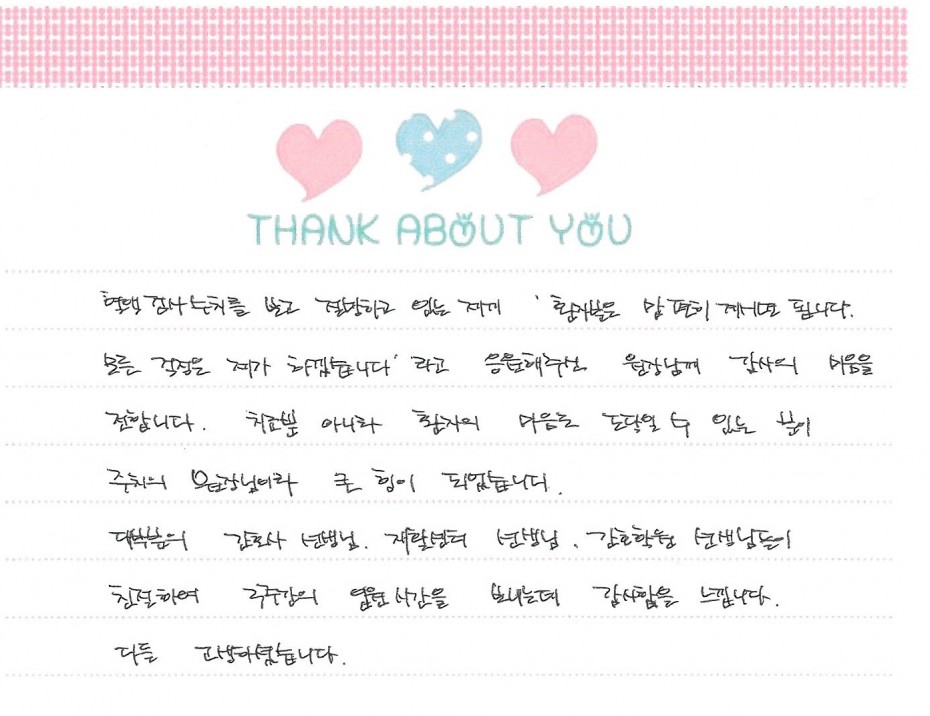 THANK ABOUT YOU
혈액 검사 수치를 보고 절망하고 있는 저에게 '환자분은 맘 편히 계시면 됩니다.
모든 걱정은 제가 하겠습니다' 라고 응원해주신 원장님께 감사의 마음을
전합니다. 치료뿐 아니라 환자의 마음도 도닥일 수 있는 분이
주치의 원장님이라 큰 힘이 되었습니다.
대부분의 간호사 선생님, 재활센터 선생님, 간호학원 선생님들이
친절하여 2주간의 입원 시간을 보내는데 감사함을 느낍니다.
다들 고생하셨습니다.